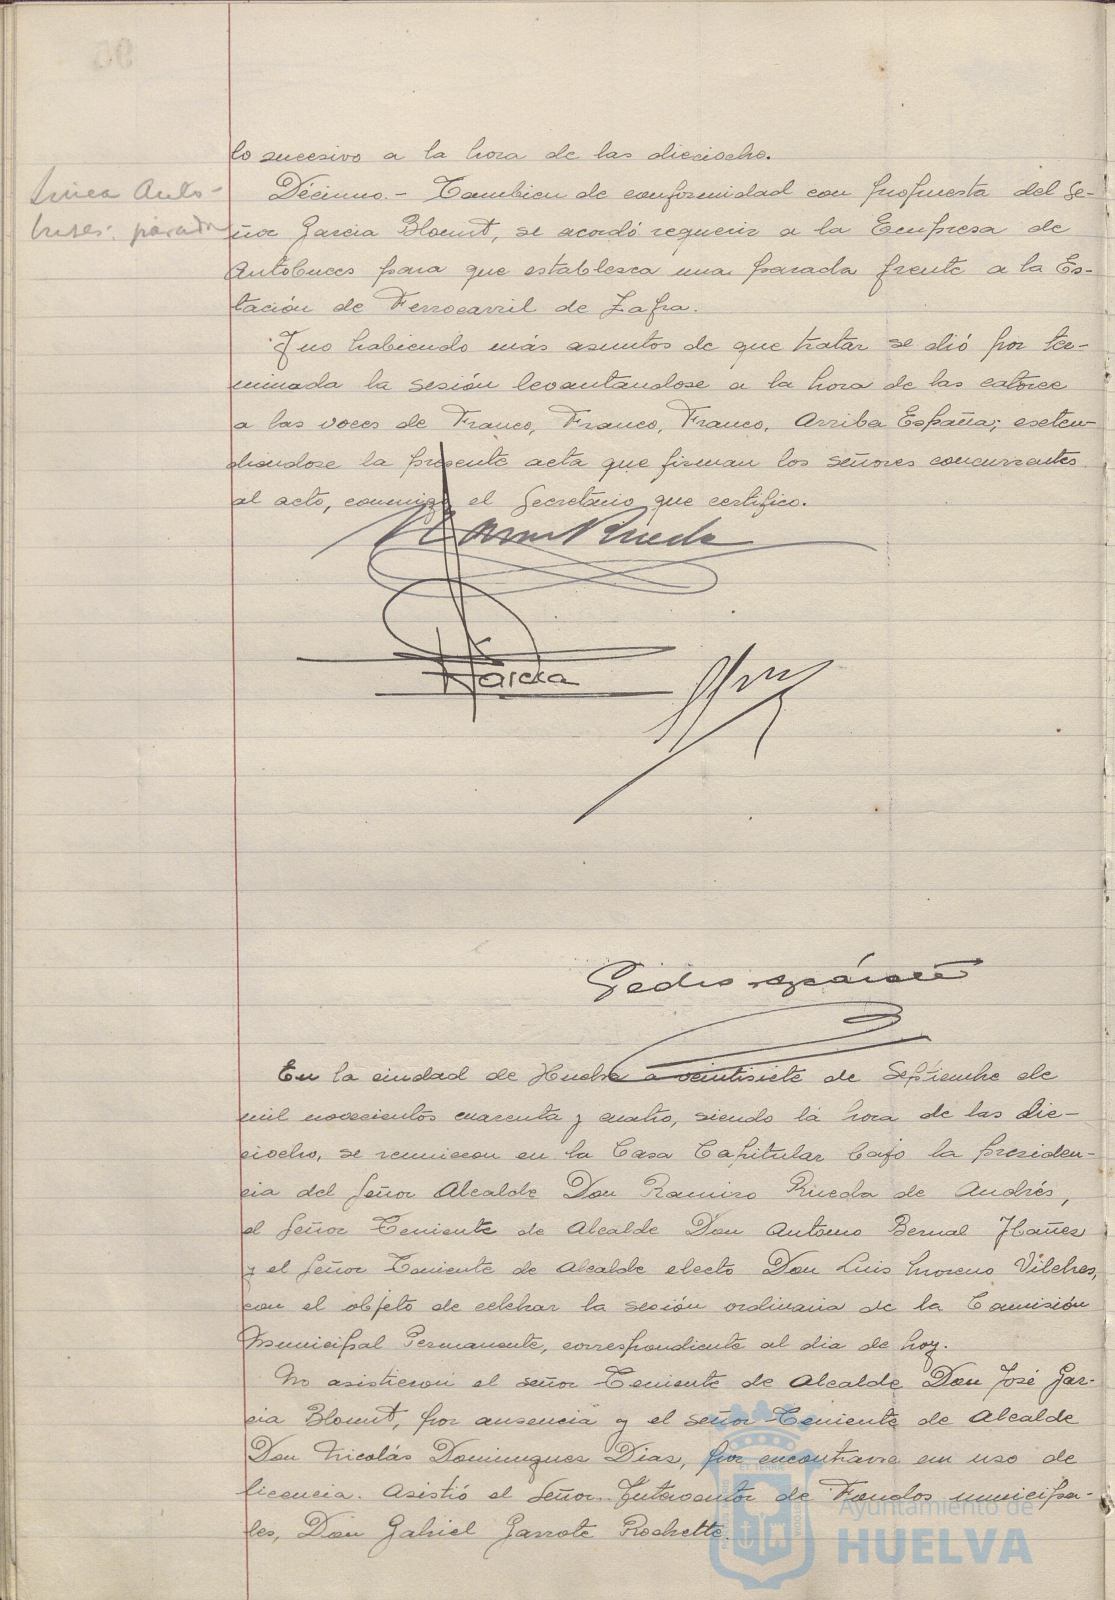 lo sucesivo a la hora de las dieciocho.
Linea Auto-
buses: parada
Décimo.- Tambien de conformidad con propuesta del Se-
ñor Garcia Blount, se acordó requerir a la Empresa de
Autobuces para que establesca una parada frente a la Es-
tación de Ferrocarril de Zafra.
Y no habiendo más asuntos de que tratar se dió por ter-
minada la sesión levantandose a la hora de las catorce
a las voces de Franco, Franco, Franco, Arriba España; eseten-
diendose la presente acta que firman los señores concurrentes
al acto, conmigo el Secretario que certifico.
Ram Rueda
Garcia
Pedro
En la ciudad de Huelva a veintisiete de Septiembre de
mil novecientos cuarenta y cuatro, siendo la hora de las die-
ciocho, se reunieron en la Casa Capitular bajo la presiden-
cia del Señor Alcalde Don Ramiro Rueda de Andrés,
el Señor Teniente de Alcalde Don Antonio Bernal Ybañez
y el Señor Teniente de Alcalde electo Don Luis Moreno Vilches,
con el objeto de celebrar la sesión ordinaria de la Comisión
Municipal Permanente, correspondiente al dia de hoy.
No asistieron el señor Teniente de Alcalde Don José Gar-
cia Blount, por ausencia y el señor Teniente de Alcalde
Don Nicolás Dominguez Dias, por encontrarse en uso de
licencia. Asistió el Señor Interventor de Fondos municipa-
les, Don Gabriel Garrote Rochette.
Ayuntamiento de
HUELVA